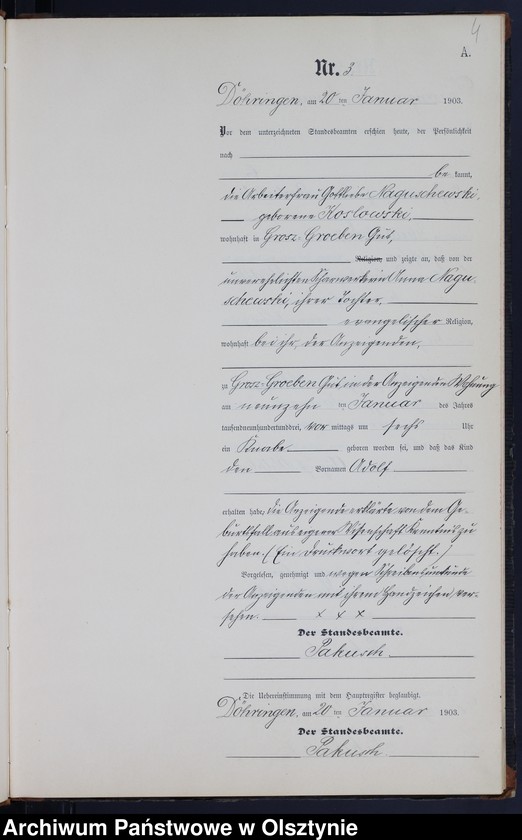 4
A.
Nr. 3
Döhringen, am 20 ten Januar 1903.
Vor dem unterzeichneten Standesbeamten erschien heute, der Persönlichkeit
nach
be kannt,
die Arbeiterfrau Gottliebe Naguschewski,
geborene Koslowski,
wohnhaft in Grosz-Groeben Gut,
Religion, und zeigte an, daß von der
unverehelichten Scharwerkerin Anna Nagu-
schewski, ihrer Tochter,
evangelischer Religion,
wohnhaft bei ihr, der Anzeigenden,
zu Grosz-Groeben Gut, in der Anzeigenden Wohnung
am neunzehn ten Januar des Jahres
tausendneunhundertunddrei, vor mittags um sechs Uhr
ein Knabe geboren worden sei, und daß das Kind
den Vornamen Adolf
erhalten habe, die Anzeigende erklärte, von dem Ge-
burtsfall aus eigener Wissenschaft Kenntnis zu
haben. (Ein Druckwort gelöscht.)
Vorgelesen, genehmigt und wegen Schreibensunkunde
der Anzeigenden mit ihrem Handzeichen ver-
sehen. x x x
Der Standesbeamte.
Pakusch
Die Uebereinstimmung mit dem Hauptregister beglaubigt.
Döhringen, am 20 ten Januar 1903.
Der Standesbeamte.
Pakusch
Archiwum Państwowe w Olsztynie